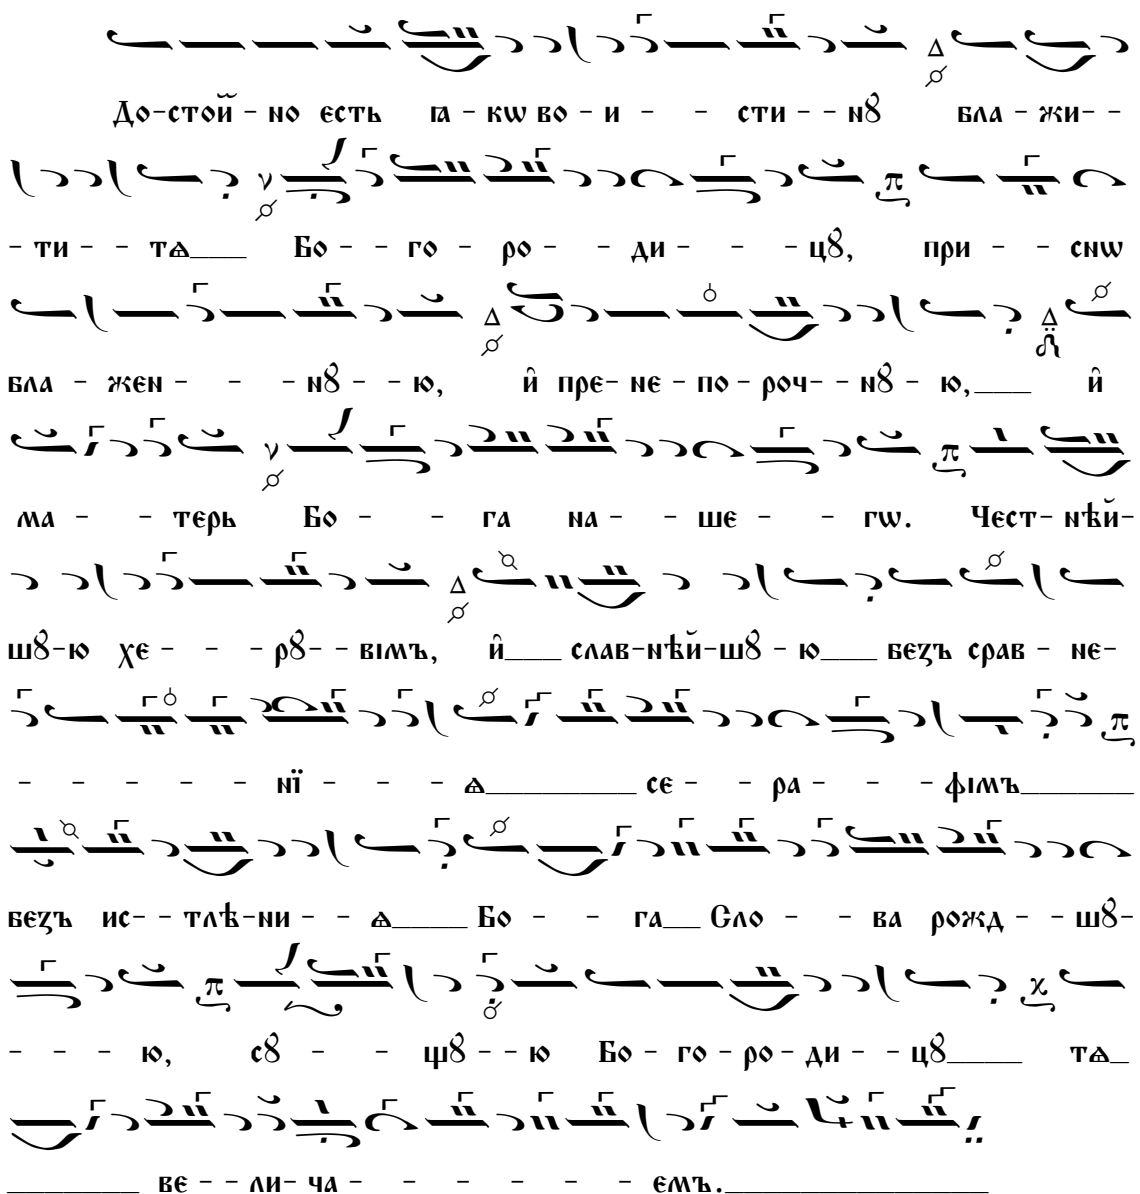 До-сто́й - но єсть ꙗ - кѡ во - и - - сти - - нꙋ бла - жи- -
- ти - - тѧ___ Бо - - го - ро - - ди - - - цꙋ, при - - снѡ
бла - жен - - - нꙋ - - ю, и҆ пре- не - по - роч- - нꙋ - ю,___ и҆
ма - - терь Бо - - га на - - ше - - гѡ. Чест- нѣй-
шꙋ-ю хе - - - рꙋ- - вімъ, и҆___ слав-нѣй-шꙋ - ю___ беꙁъ срав - не-
- - - - - нї - - - ѧ________ се - - ра - - - фімъ______
беꙁъ ис- - тлѣ-ни - - ѧ____ Бо - - га__ Сло - - ва рожд - - шꙋ-
- - - ю, сꙋ - - щꙋ - - ю Бо - го - ро - ди - - цꙋ____ тѧ_
_______ ве - - ли- ча - - - - - - емъ.______________